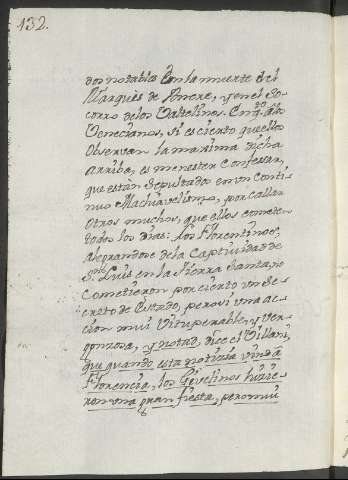 132.
dos notables con la muerte del
Marquès de Ancre, y en el So-
corro de los Valtelinos. En q.to a los
Venecianos, si es cierto que ellos
observan la maxima dicha
arriba, es menester confessar,
que estàn sepultados en un conti-
nuo Machiavelismo, por callar
otros muchos, que ellos cometen
todos los dias: Los Florentines,
alegrandose de la Captividad de
S.n Luis en la Tierra Santa, no
cometieron por cierto un Se-
creto de Estado, pero si una ac-
cion mui vituperable, y ver-
gonzosa, y notad, dice el Villani,
que quando esta noticia vino à
Florencia, los Givelinos hizie-
ron una gran fiesta, pero mui